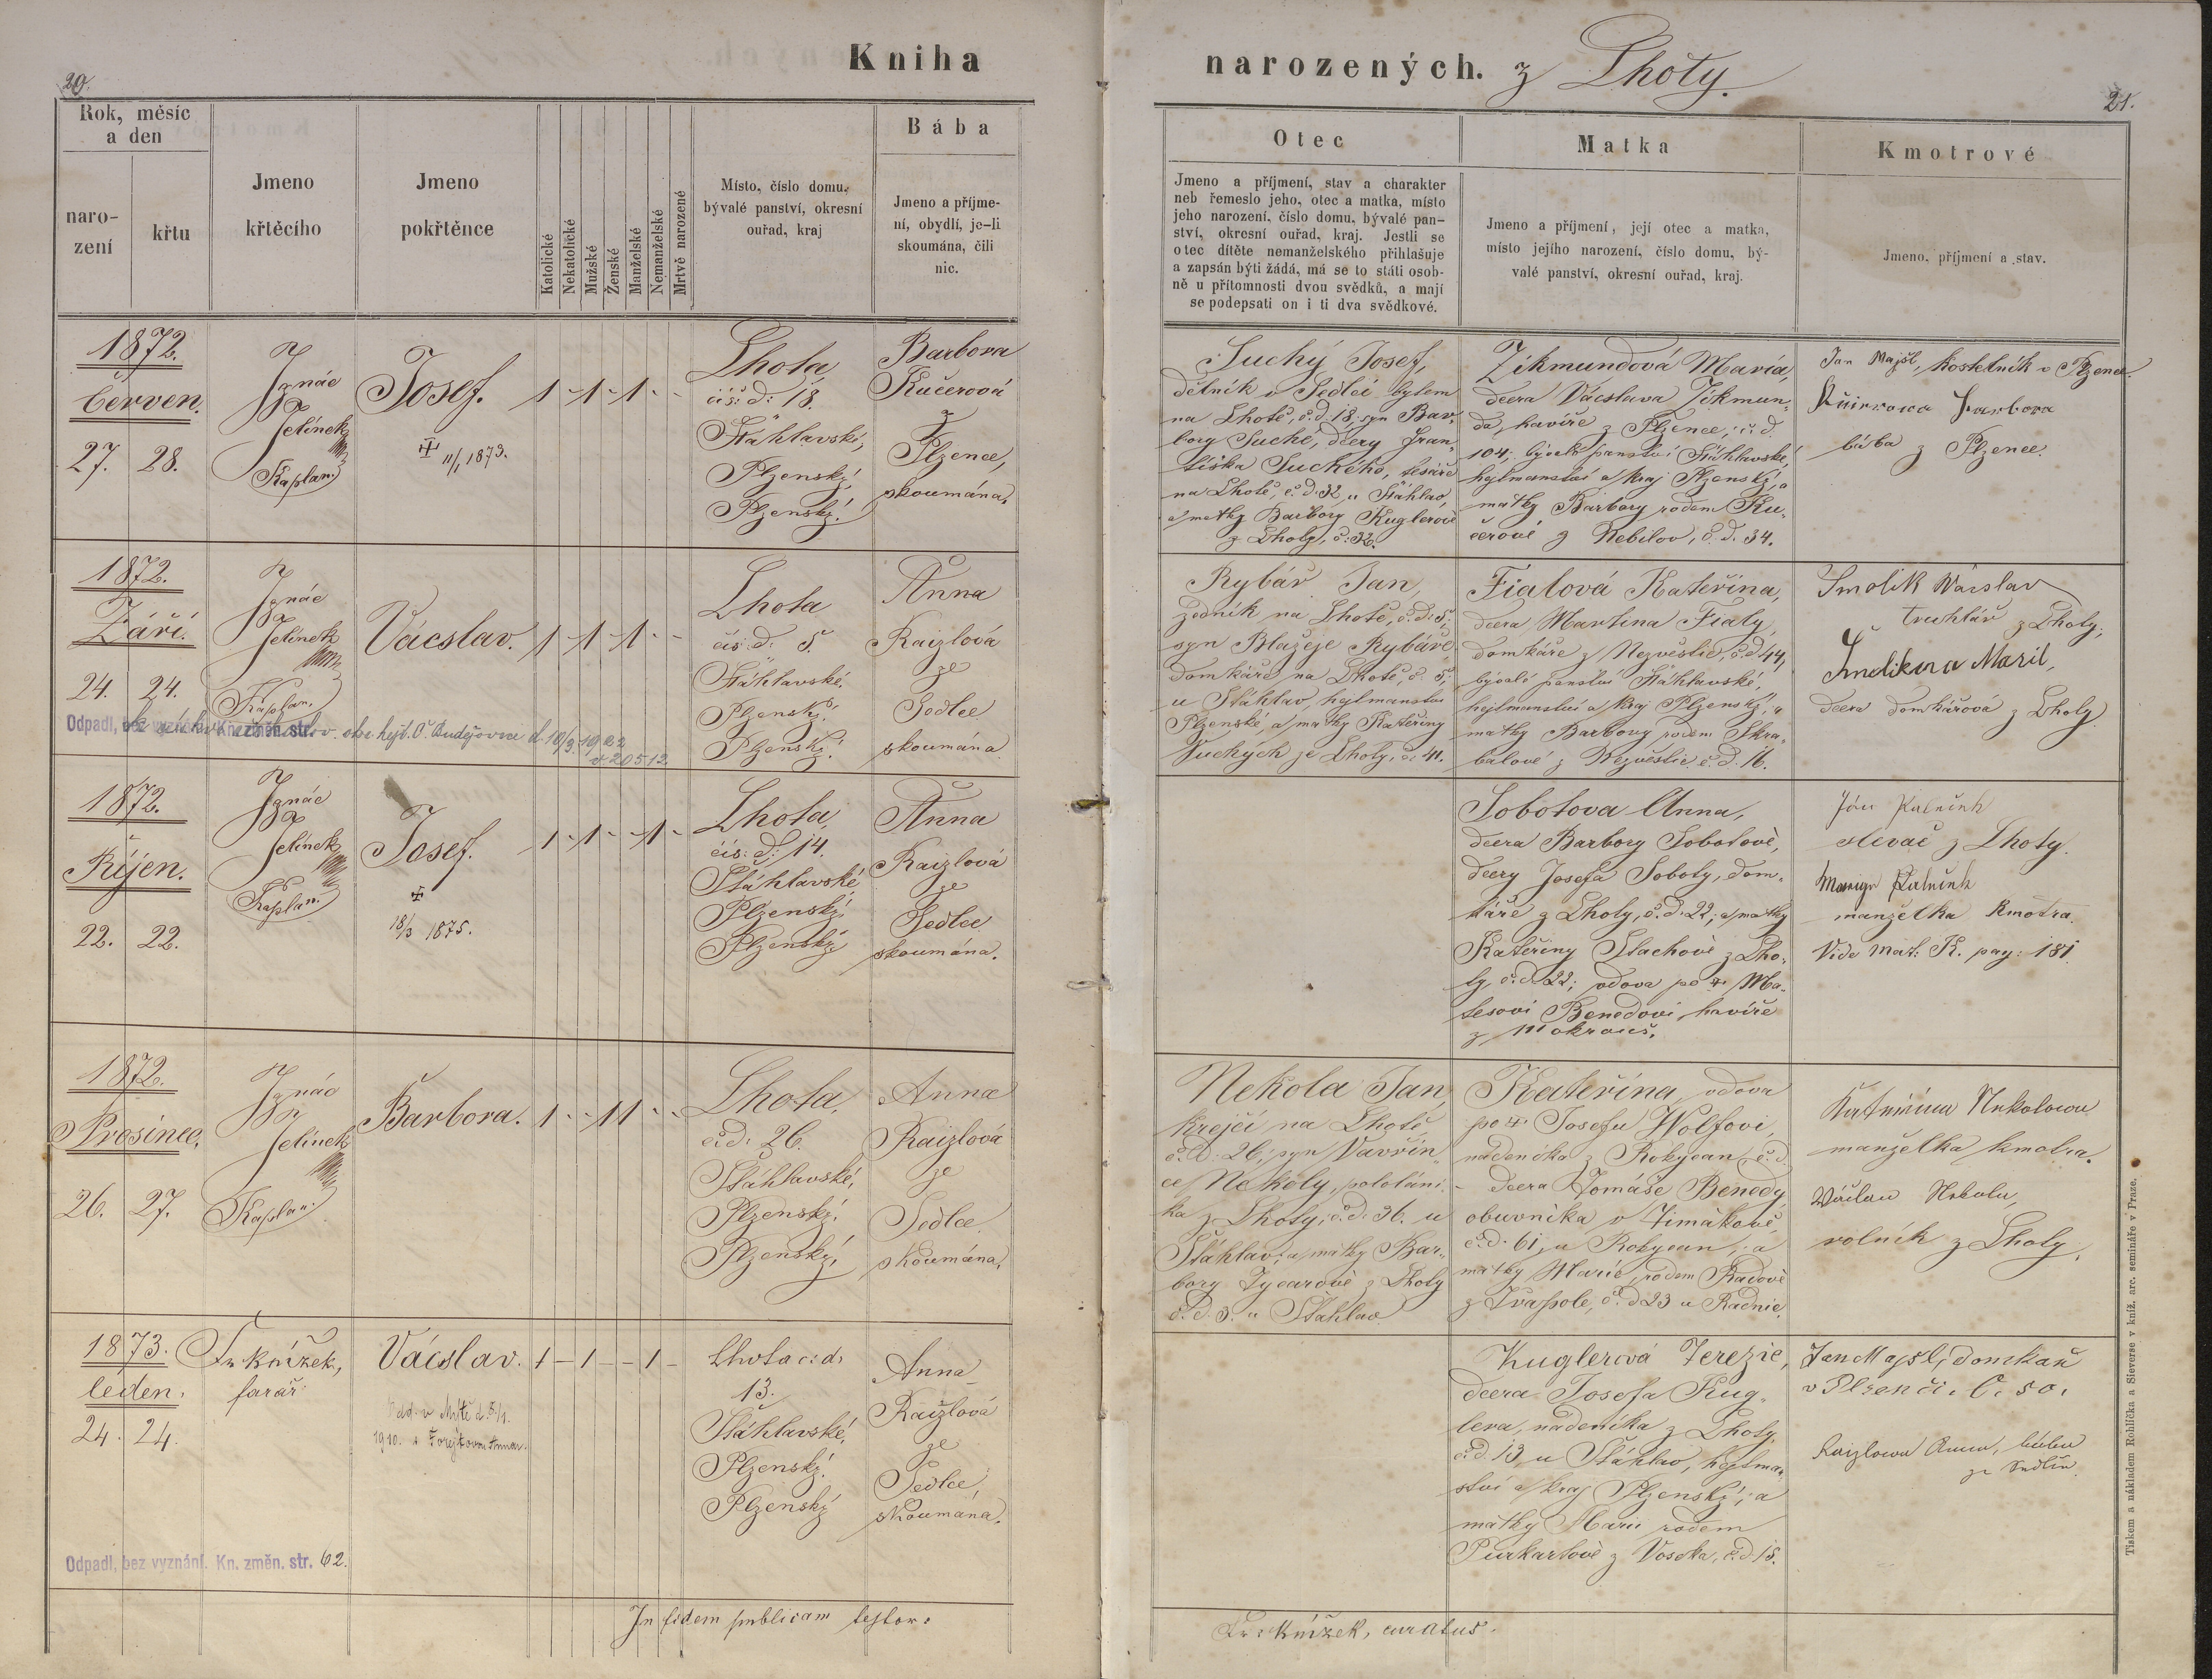 20.
Kniha
narozených. z Lhoty.
21.
Rok, měsíc
a den
naro-
zení
křtu
Jmeno
křtěcího
Jmeno
pokřtěnce
Katolické
Nekatolické
Mužské
Ženské
Manželské
Nemanželské
Mrtvě narozené
Místo, číslo domu,
bývalé panství, okresní
ouřad, kraj
Bába
Jmeno a příjme-
ní, obydlí, je-li
skoumána, čili
nic.
Otec
Jmeno a příjmení, stav a charakter
neb řemeslo jeho, otec a matka, místo
jeho narození, číslo domu, bývalé pan-
ství, okresní ouřad, kraj. Jestli se
otec dítěte nemanželského přihlašuje
a zapsán býti žádá, má se to státi osob-
ně u přítomnosti dvou svědků, a mají
se podepsati on i ti dva svědkové.
Matka
Jmeno a příjmení, její otec a matka,
místo jejího narození, číslo domu, bý-
valé panství, okresní ouřad, kraj.
Kmotrové
Jmeno, příjmení a stav.
1872.
Červen.
27. 28.
Ignác
Jelínek
Kaplan
Josef.
11/1 1873.
1 - 1 - 1 - -
Lhota
čís: d: 18.
Šťáhlavské,
Plzenský,
Plzenský.
Barbora
Kučerová
z
Plzence,
skoumána.
Suchý Josef,
dělník v Sedlci bytem
na Lhotě, č. d. 18; syn Bar-
bory Suché, dcery Fran-
tiška Suchého, tesaře
na Lhotě, č. d. 32 u Šťáhlav,
a matky Barbory Kuglerové
z Lhoty, č. 32.
Zikmundová Maria,
dcera Vácslava Zikmun-
da, havíře z Plzence, č. d.
104, bývalé panství Šťáhlavské,
hejtmanství a kraj Plzenský, a
matky Barbory rodem Ku-
čerové z Nebílov, č. d. 34.
Jan Majšl, kostelník v Plzenci.
Barbora
bába z Plzence.
1872.
Září.
24. 24.
Ignác
Jelínek
Kaplan.
Odpadl, bez vyznání. Kn. změn. str.
10/3 1922
č. 20512.
Vácslav.
1 - 1 - 1 - -
Lhota
čís: d: 5.
Šťáhlavské,
Plzenský,
Plzenský.
Anna
Raizlová
ze
Sedlce
skoumána
Rybář Jan,
zedník na Lhotě, č. d. 5;
syn Blažeje Rybáře,
domkáře na Lhotě, č. 5
u Šťáhlav, hejtmanství
Plzenské, a matky Kateřiny
Suchých ze Lhoty, č. 41.
Fialová Kateřina,
dcera Martina Fialy,
domkáře z Nezvěstic, č. d. 44,
bývalé panství Šťáhlavské,
hejtmanství a kraj Plzenský, a
matky Barbory rodem Skra-
balové z Nezvěstic č. d. 16.
Smolík Wácslav
truhlář z Lhoty,
dcera domkářová z Lhoty
1872.
Říjen.
22. 22.
Ignác
Jelínek
Kaplan.
Josef.
18/3 1875.
1 - 1 - - 1 -
Lhota,
čís: d: 14.
Šťáhlavské,
Plzenský,
Plzenský
Anna
Raizlová
ze
Sedlce
skoumána.
Sobotova Anna,
dcera Barbory Sobotové,
dcery Josefa Soboty, dom-
káře z Lhoty, č. d. 22; a matky
Kateřiny Stachové z Lho-
ty, č. d. 22; vdova po Ma-
tesovi Benedovi, havíře
z Mokrouš.
Jan
slevač z Lhoty.
manželka kmotra.
Vide mat: K. pag: 181.
1872.
Prosinec.
26. 27.
Ignác
Jelínek
Kaplan.
Barbora.
1 - - 1 1 - -
Lhota,
č. d. 26.
Šťáhlavské,
Plzenský,
Plzenský,
Anna
Raizlová
ze
Sedlce
skoumána,
Nekola Jan
krejčí na Lhotě
č. d. 26; syn Vavřin-
ce Nekoly, pololání-
ka z Lhoty, č. d. 36. u
Šťáhlav; a matky Bar-
bory z Lhoty
č. d. 3. u Šťáhlav
Kateřina, vdova
po Josefu Wolfovi,
nádeníka z Rokycan, č. d.
- dcera Tomáše Benedy,
obuvníka v Timákově
č. d. 61, u Rokycan; a
matky Marie, rodem Radové
č. d. 23 u Radnic.
Kateřina Nekolowa
manželka kmotra.
Wáclaw Nekola,
rolník z Lhoty.
1873.
leden.
24. 24.
Fr. Knížek,
farář
Odpadl, bez vyznání. Kn. změn. str. 62.
Vácslav.
Odd. v Mýtě d. 5/1.
1910. s Annou.
1 - 1 - - 1 -
Lhota c: d:
13.
Šťáhlavské,
Plzenský.
Plzenský
Anna
Raizlová
ze
Sedlce,
skoumána.
Kuglerová Terezie,
dcera Josefa Kug-
lera, nádeníka z Lhoty,
č. d. 13 u Šťáhlav, hejtman-
ství a kraj Plzenský; a
matky Marii rodem
Purkartové z Voseka, č. d. 15.
Jan Majšl, domkař
v Plzenci. č. 50.
Raizlowa Anna, bába
ze Sedlce.
In fidem publicam testor:
Fr: Knížek, curatus.
Tiskem a nákladem Rohlíčka a Sieverse v kníž. arc. semináře v Praze.